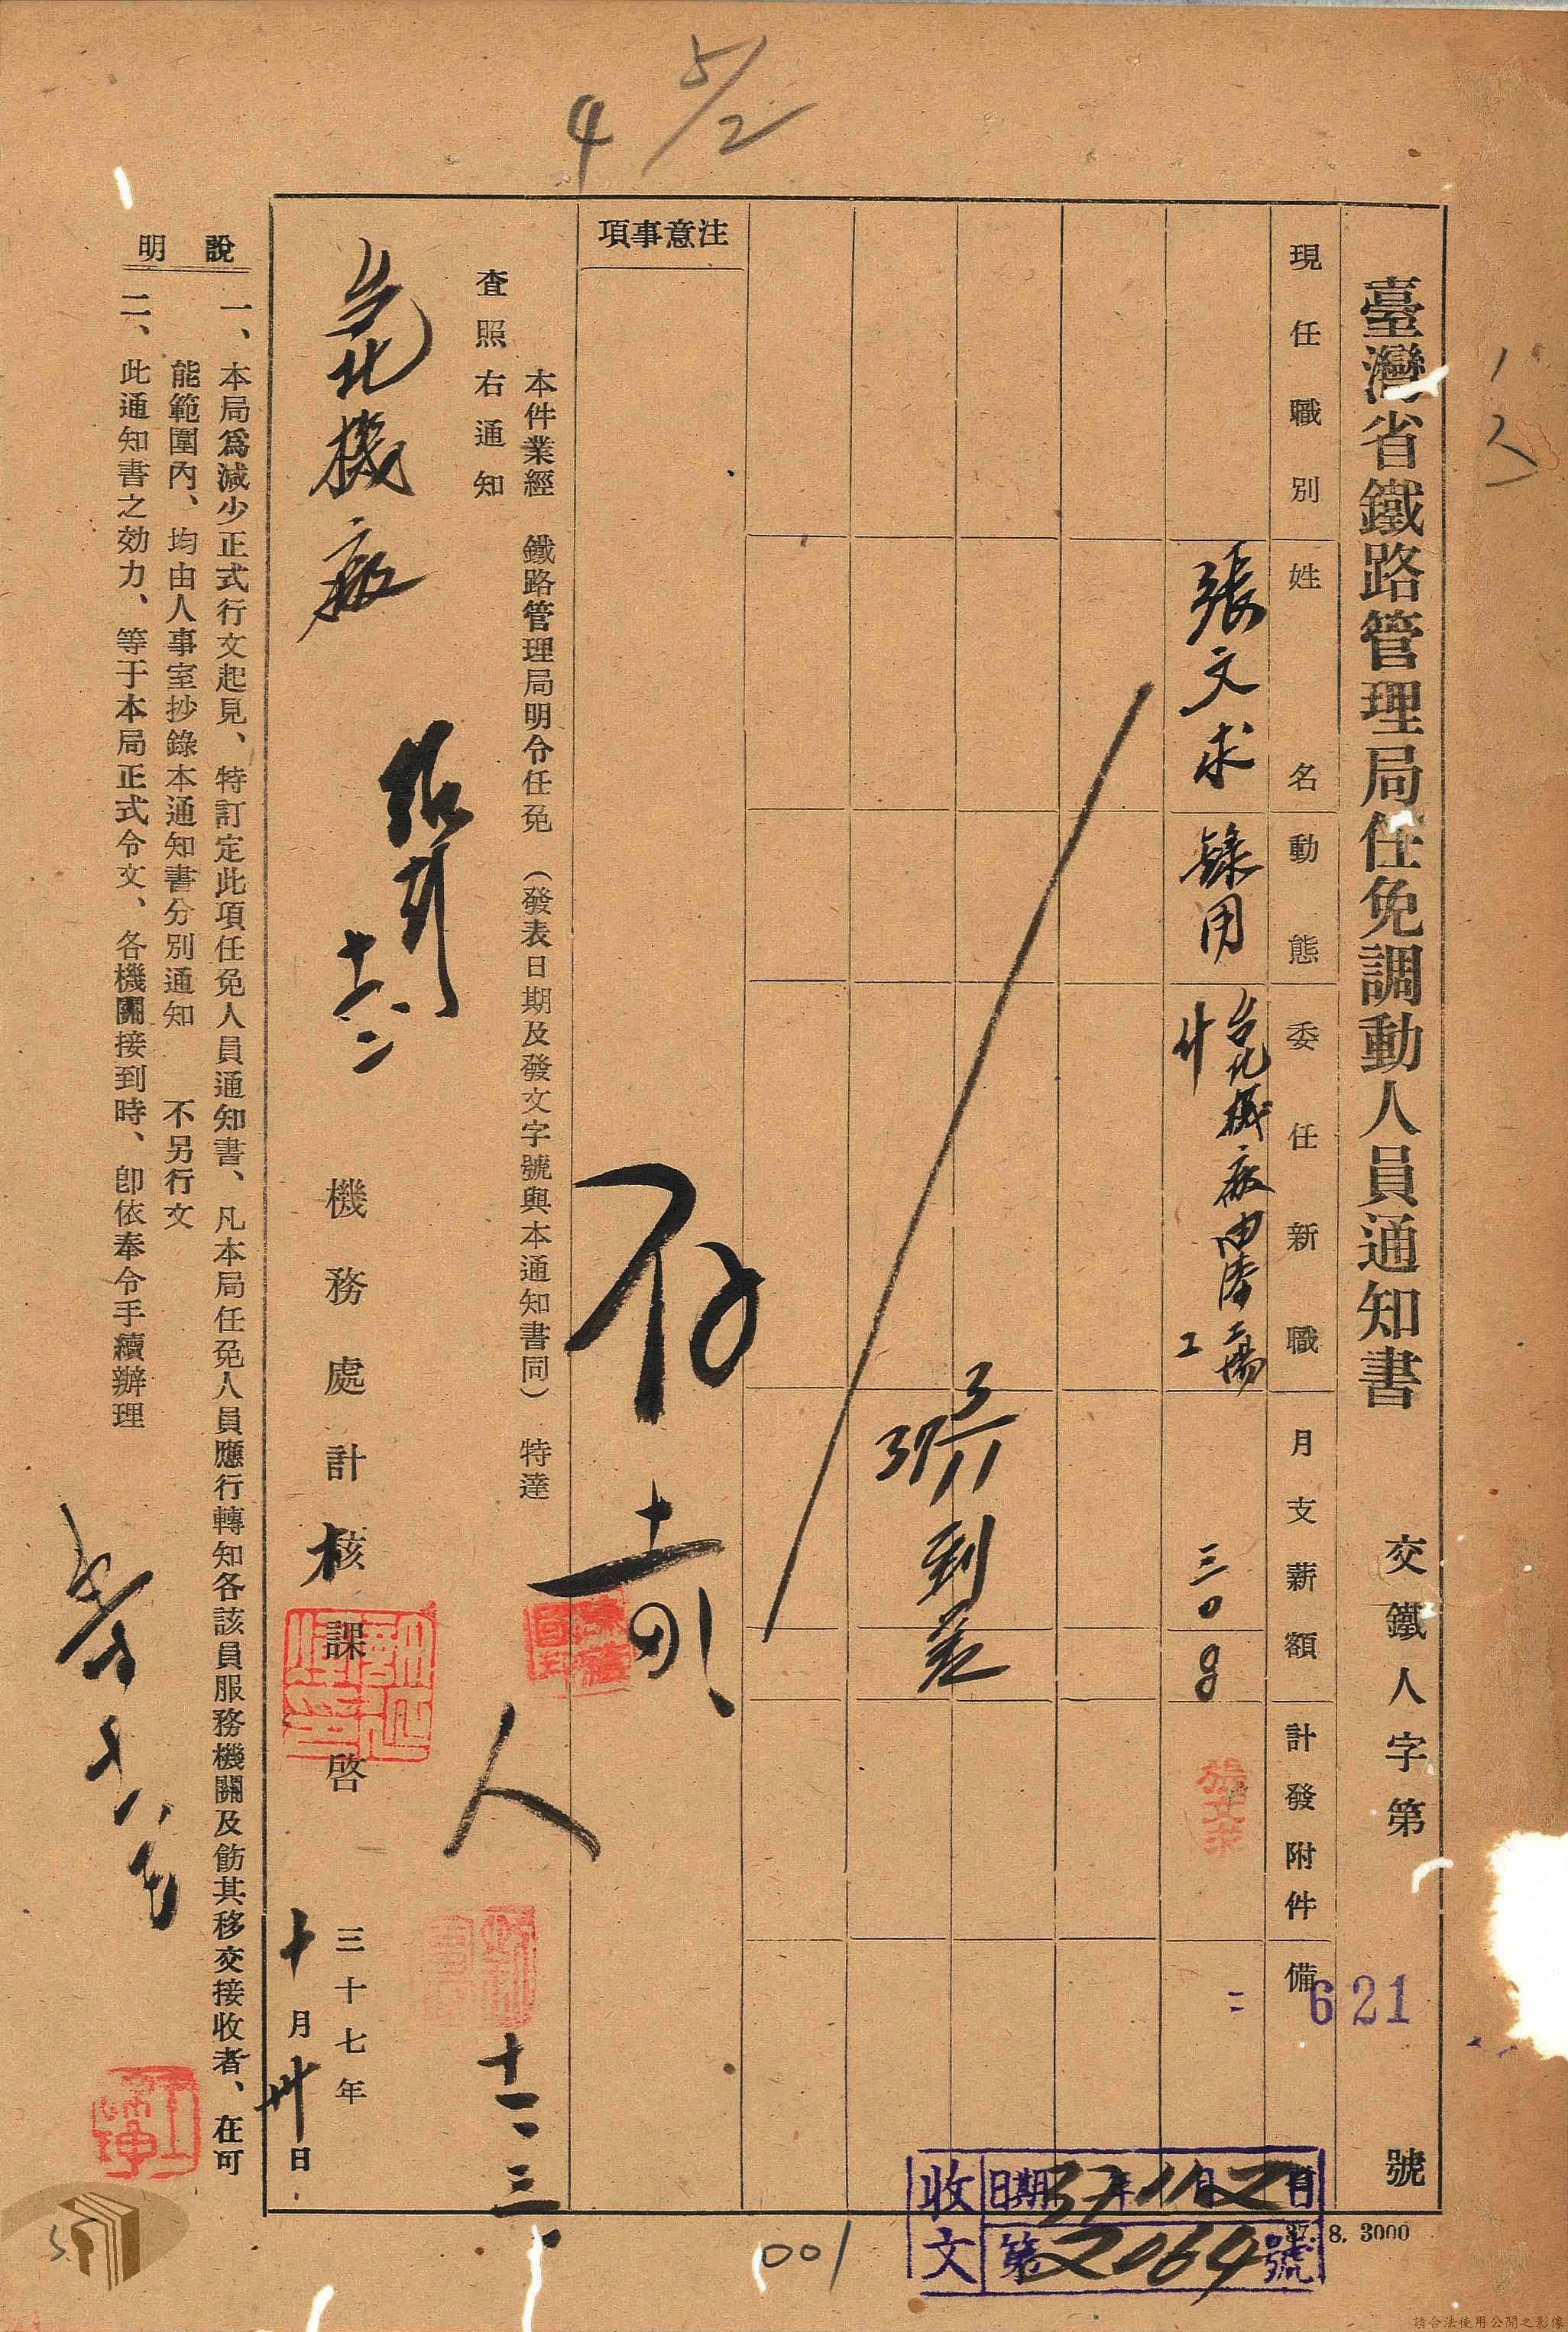 臺灣省鐵路管理局任免調動人員通知書
交鐵人字第 號
621
現任職別
姓名
動態
委任新職
月支薪額
計發附件
備
張文求
錄用
台北機廠油漆工場
工
三〇
張文求
37 3/11 到差
注意事項
存
本件業經 鐵路管理局明令任免 (發表日期及發文字號與本通知書同) 特達
查照右通知
台北機廠
機務處計核課啓
人
十一、三、
三十七年
十月卅日
說明
一、本局爲減少正式行文起見、特訂定此項任免人員通知書、凡本局任免人員應行轉知各該員服務機關及飭其移交接收者、在可
能範圍內、均由人事室抄錄本通知書分別通知 不另行文
二、此通知書之効力、等于本局正式令文、各機關接到時、卽依奉令手續辦理
收文
日期 37年11月2日
第2064號
37. 8. 3000
001
4 5/2
請合法使用公開之影像